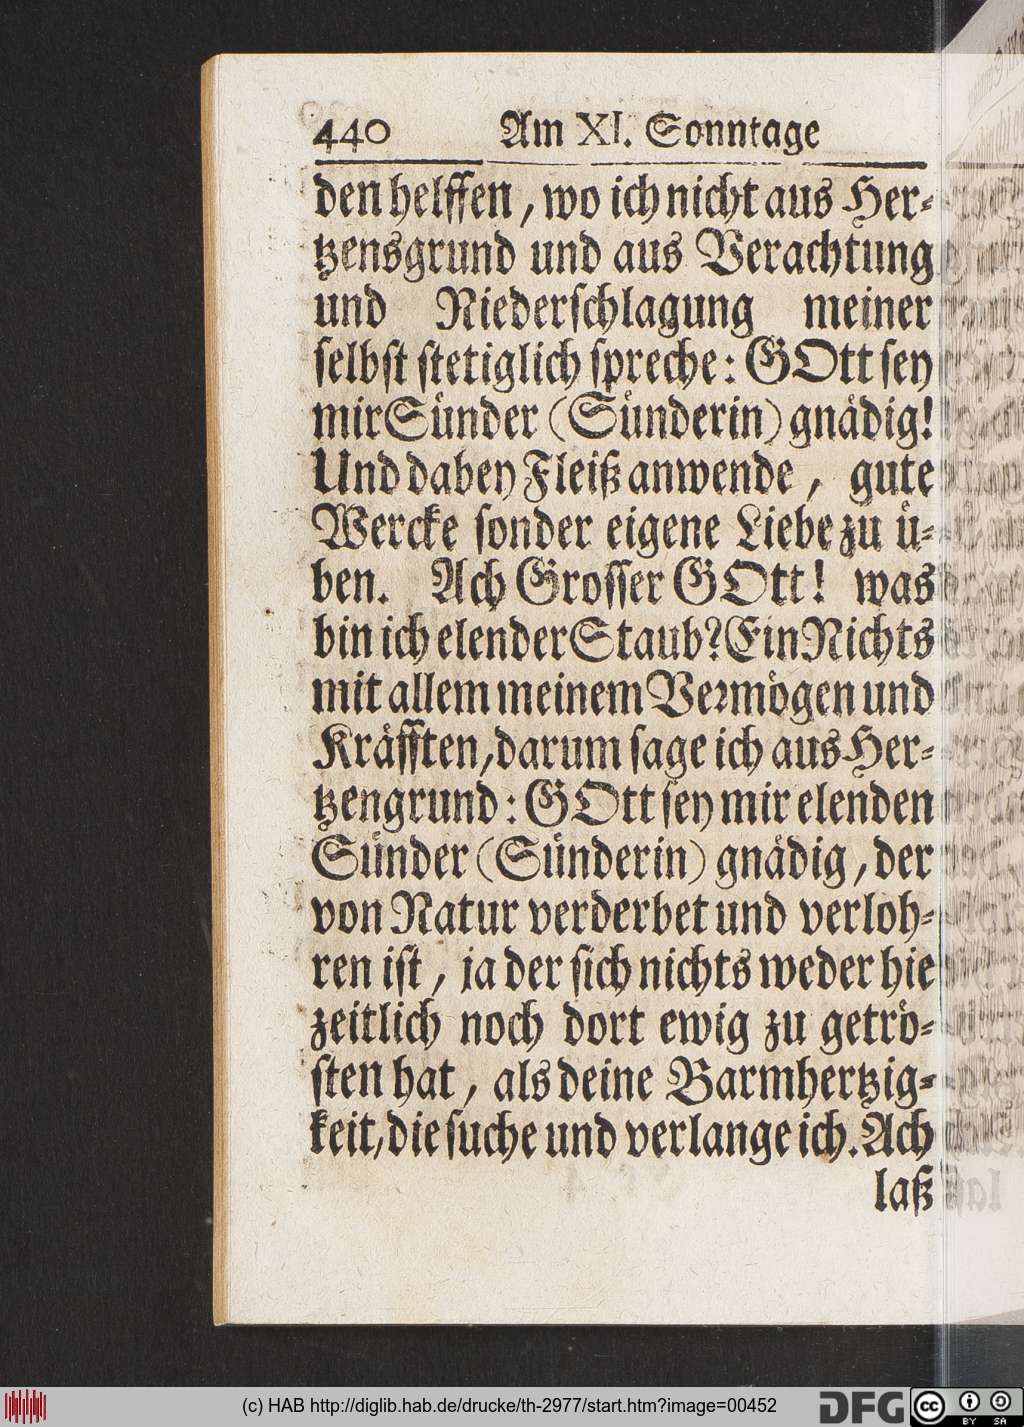 440 Am XI. Sonntage
den helffen, wo ich nicht aus Her-
tzensgrund und aus Verachtung
und Niederschlagung meiner
selbst stetiglich spreche: GOtt sey
mir Sünder (Sünderin) gnädig!
Und dabey Fleiß anwende, gute
Wercke sonder eigene Liebe zu ü-
ben. Ach Grosser GOtt! was
bin ich elender Staub? Ein Nichts
mit allem meinem Vermögen und
Kräfften, darum sage ich aus Her-
tzengrund: GOtt sey mir elenden
Sünder (Sünderin) gnädig, der
von Natur verderbet und verloh-
ren ist, ja der sich nichts weder hie
zeitlich noch dort ewig zu getrö-
sten hat, als deine Barmhertzig-
keit, die suche und verlange ich. Ach
laß
(c) HAB http://diglib.hab.de/drucke/th-2977/start.htm?image=00452
DFG
cc BY SA